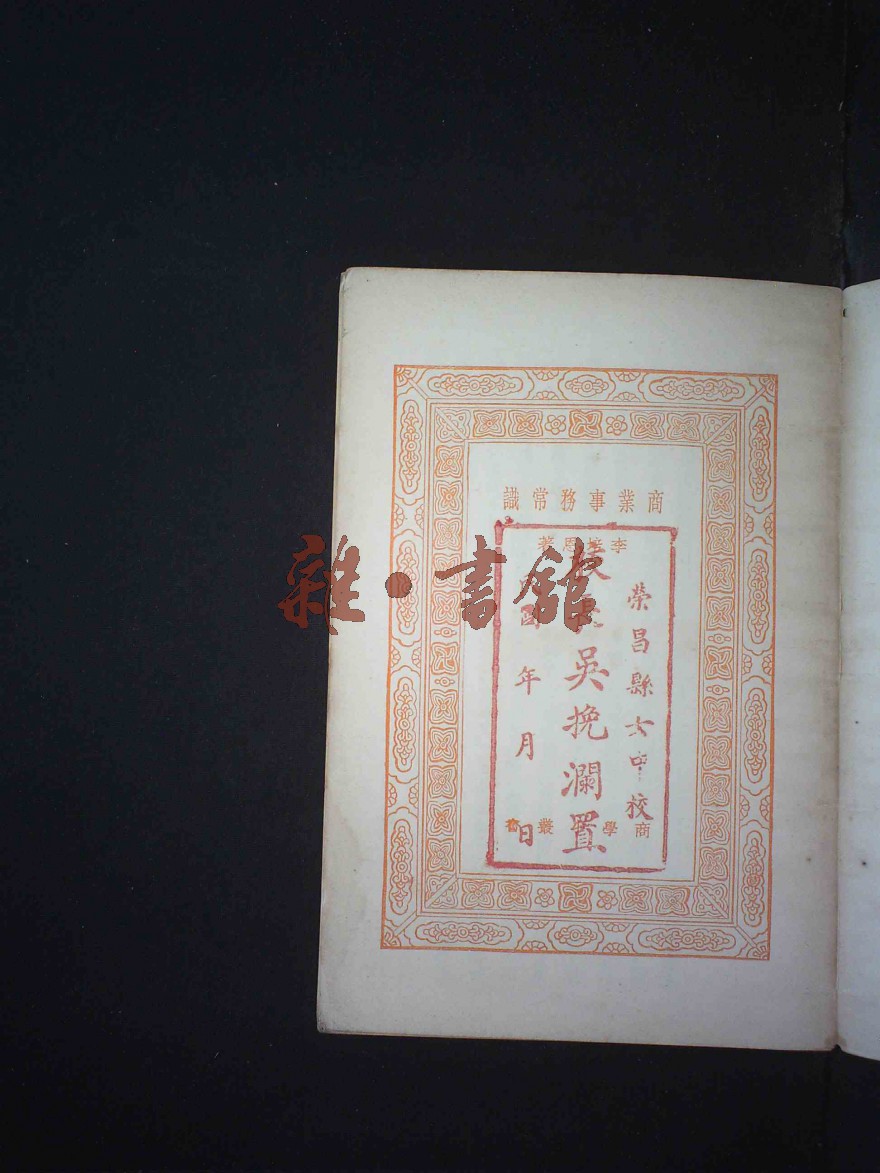 商業事務常識
李培恩著
榮昌縣女中校
校長吳挽瀾置
國年月日
商學叢書
雜·書館